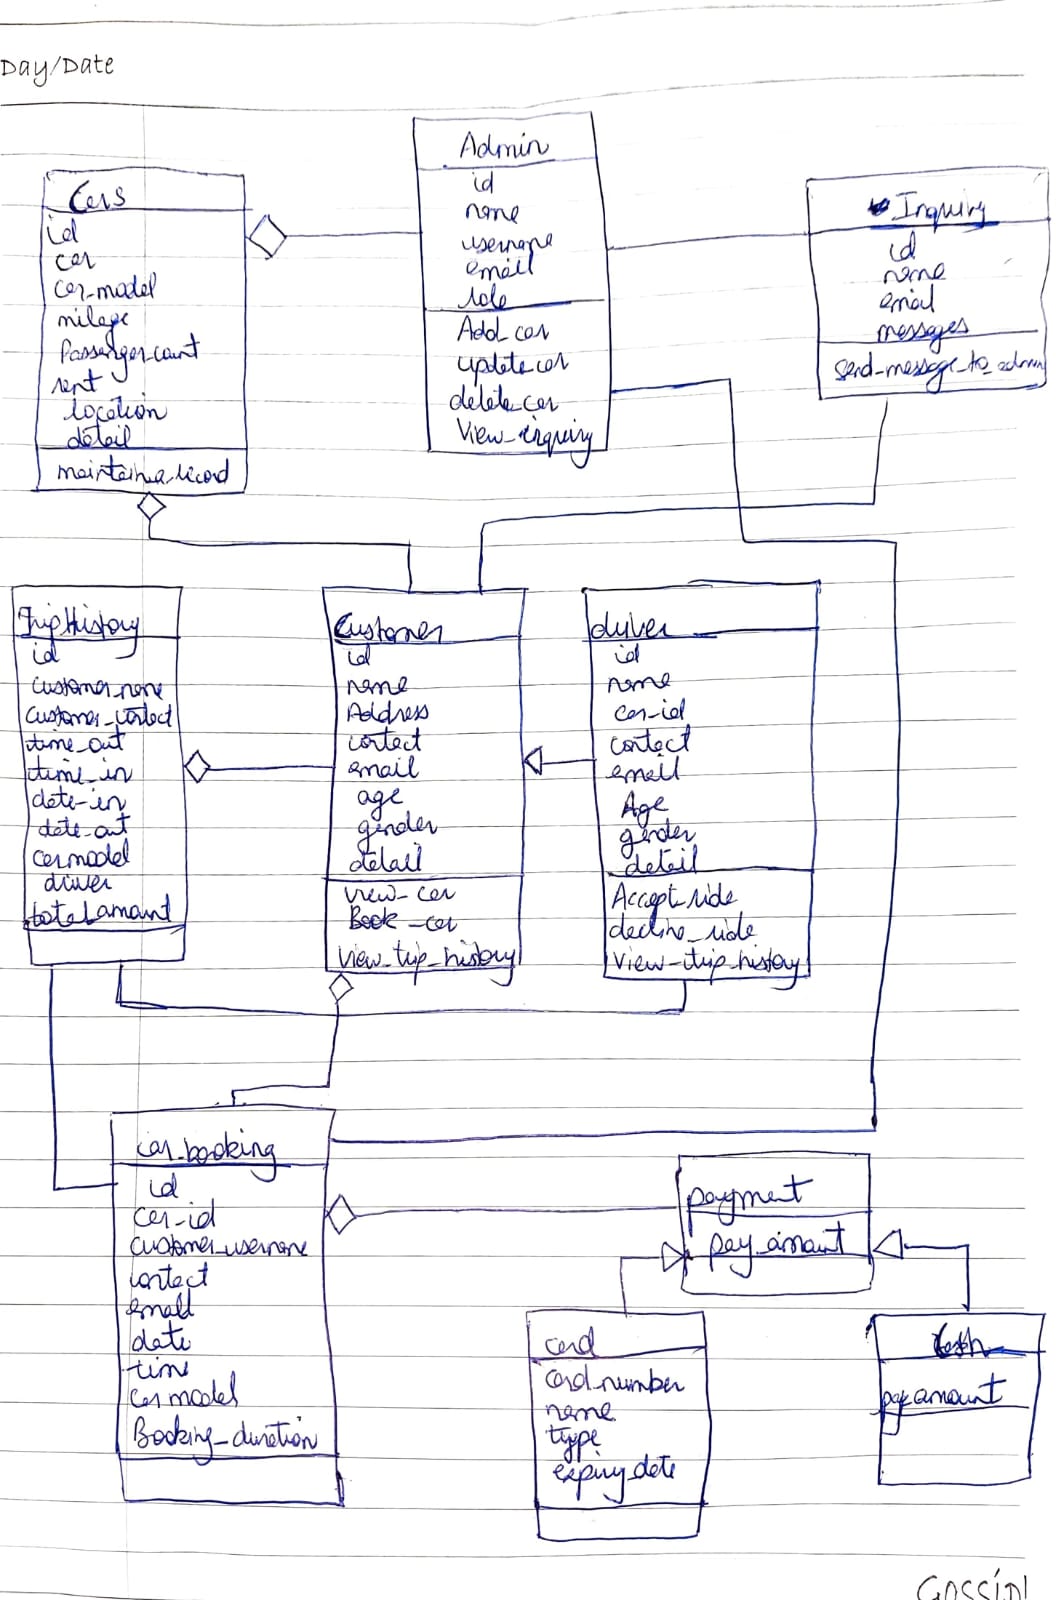 Day/Date
Admin
id
name
username
email
role
Add_car
update_car
delete_car
View_inquiry
Cars
id
car
car_model
milage
Passenger_count
rent
location
detail
maintain_a_record
Inquiry
id
name
email
messages
send_message_to_admin
TripHistory
id
customer_name
customer_contact
time_out
time_in
date_in
date_out
carmodel
driver
total_amount
Customer
id
name
Address
contact
email
age
gender
detail
view_car
Book_car
view_trip_history
driver
id
name
car_id
contact
email
Age
gender
detail
Accept_ride
decline_ride
view_trip_history
car_booking
id
car_id
customer_username
contact
email
date
time
car model
Booking_duration
payment
pay_amount
card
card_number
name
type
expiry_date
Cash
pay amount